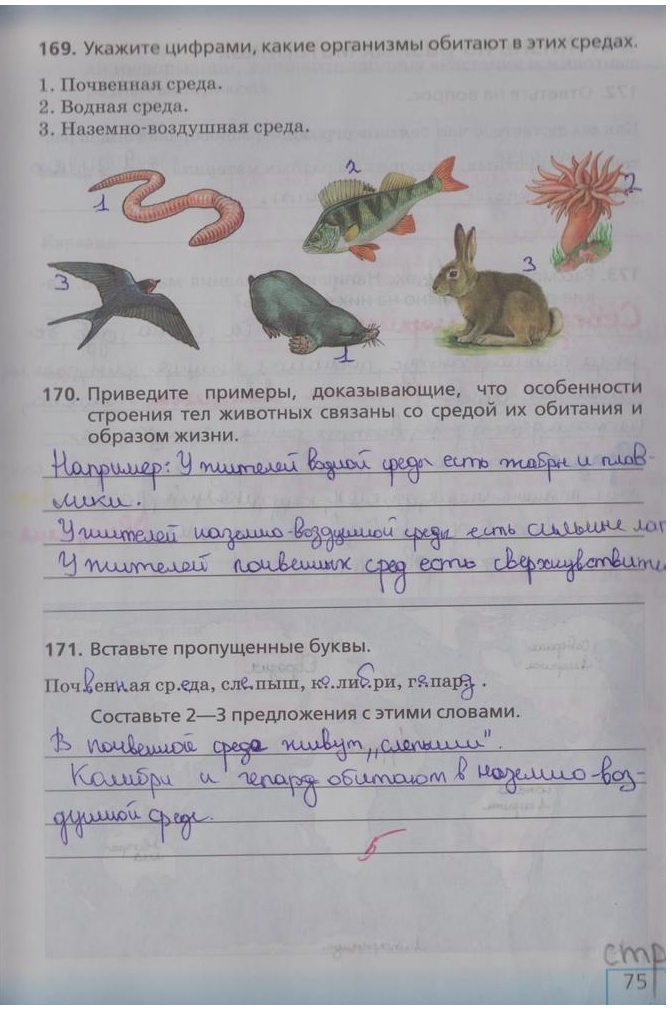 169. Укажите цифрами, какие организмы обитают в этих средах.
1. Почвенная среда.
2. Водная среда.
3. Наземно-воздушная среда.
1
2
2
3
1
3
170. Приведите примеры, доказывающие, что особенности
строения тел животных связаны со средой их обитания и
образом жизни.
Например: У жителей водной среды есть жабры и плав-
ники.
У жителей наземно-воздушной среды есть сильные лап
У жителей почвенных сред есть сверхчувствител
171. Вставьте пропущенные буквы.
Почвенная среда, слепыш, колибри, гепард.
Составьте 2—3 предложения с этими словами.
В почвенной среде живут „слепыши".
Колибри и гепард обитают в наземно-воз-
душной среде.
5
стр
75